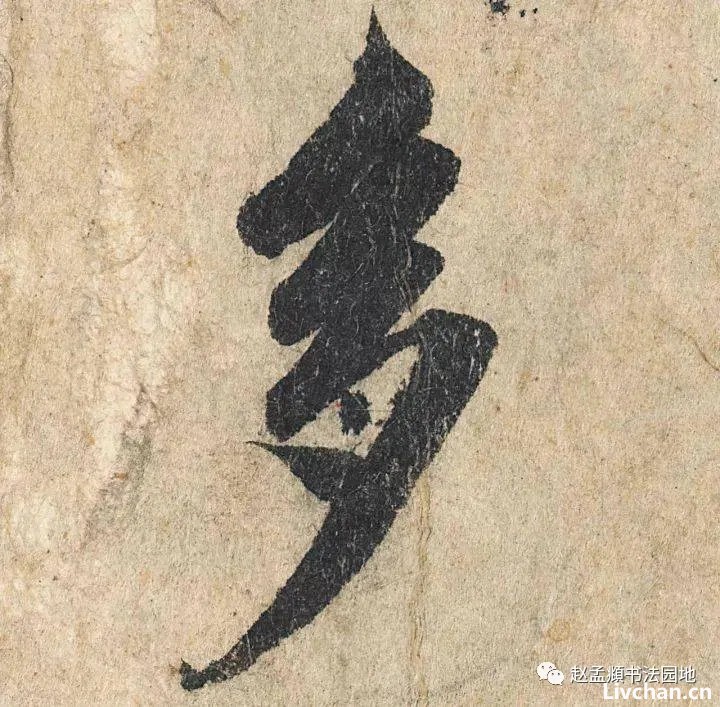 多
赵孟頫书法园地
Livchan.cn